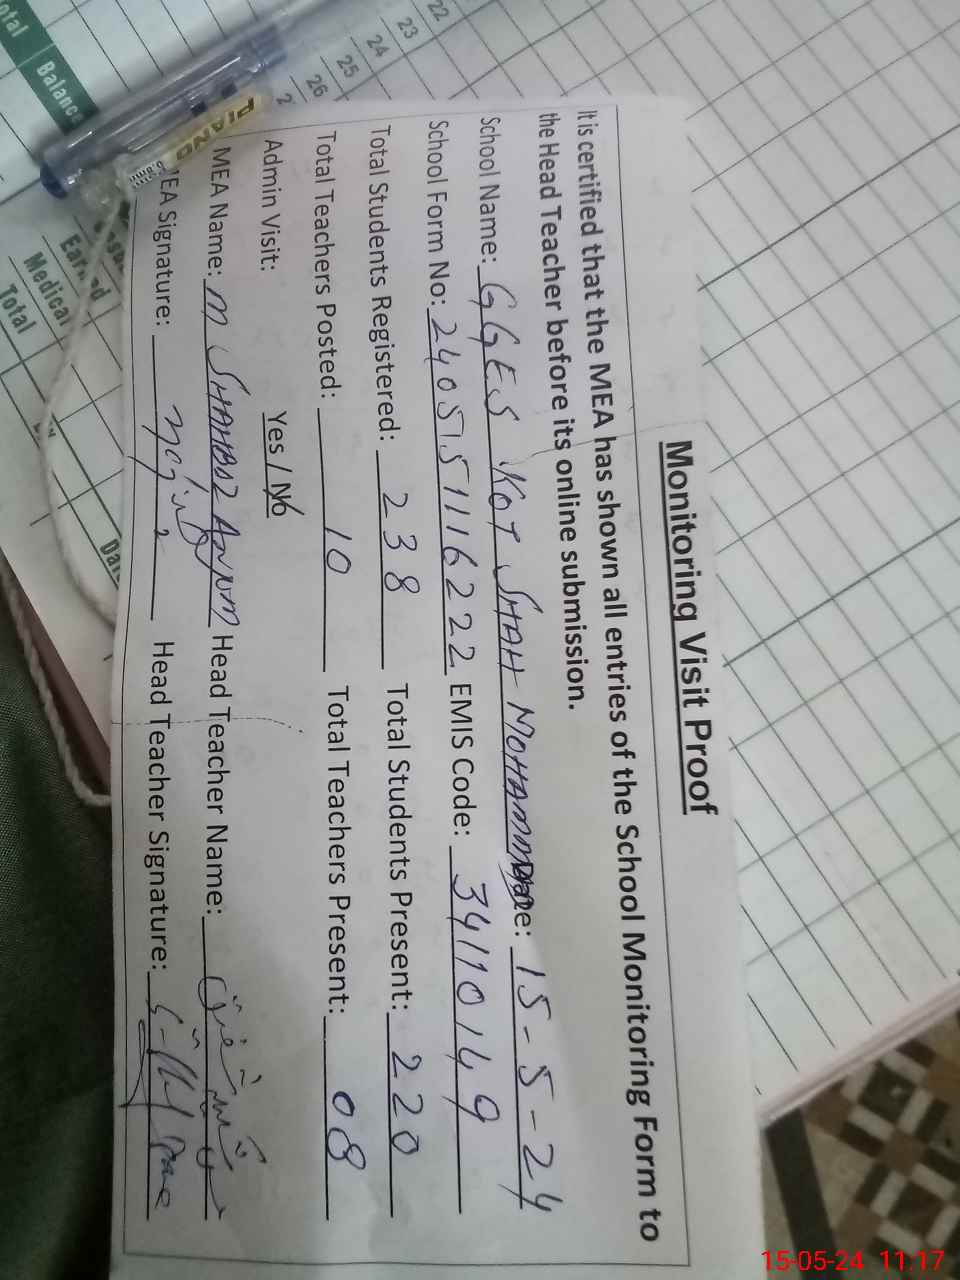 Monitoring Visit Proof
It is certified that the MEA has shown all entries of the School Monitoring Form to
the Head Teacher before its online submission.
School Name: GGES KOT SHAH MOHAMMAD Date: 15-5-24
School Form No: 2405151116222 EMIS Code: 34110149
Total Students Registered: 238 Total Students Present: 220
Total Teachers Posted: 10 Total Teachers Present: 08
Admin Visit: Yes / No
MEA Name: M SHAHBAZ ANJUM Head Teacher Name:
MEA Signature: Head Teacher Signature:
Total
Balance
22
23
24
25
26
2
PIANO
Earned
Medical
Total
15-05-24 11:17